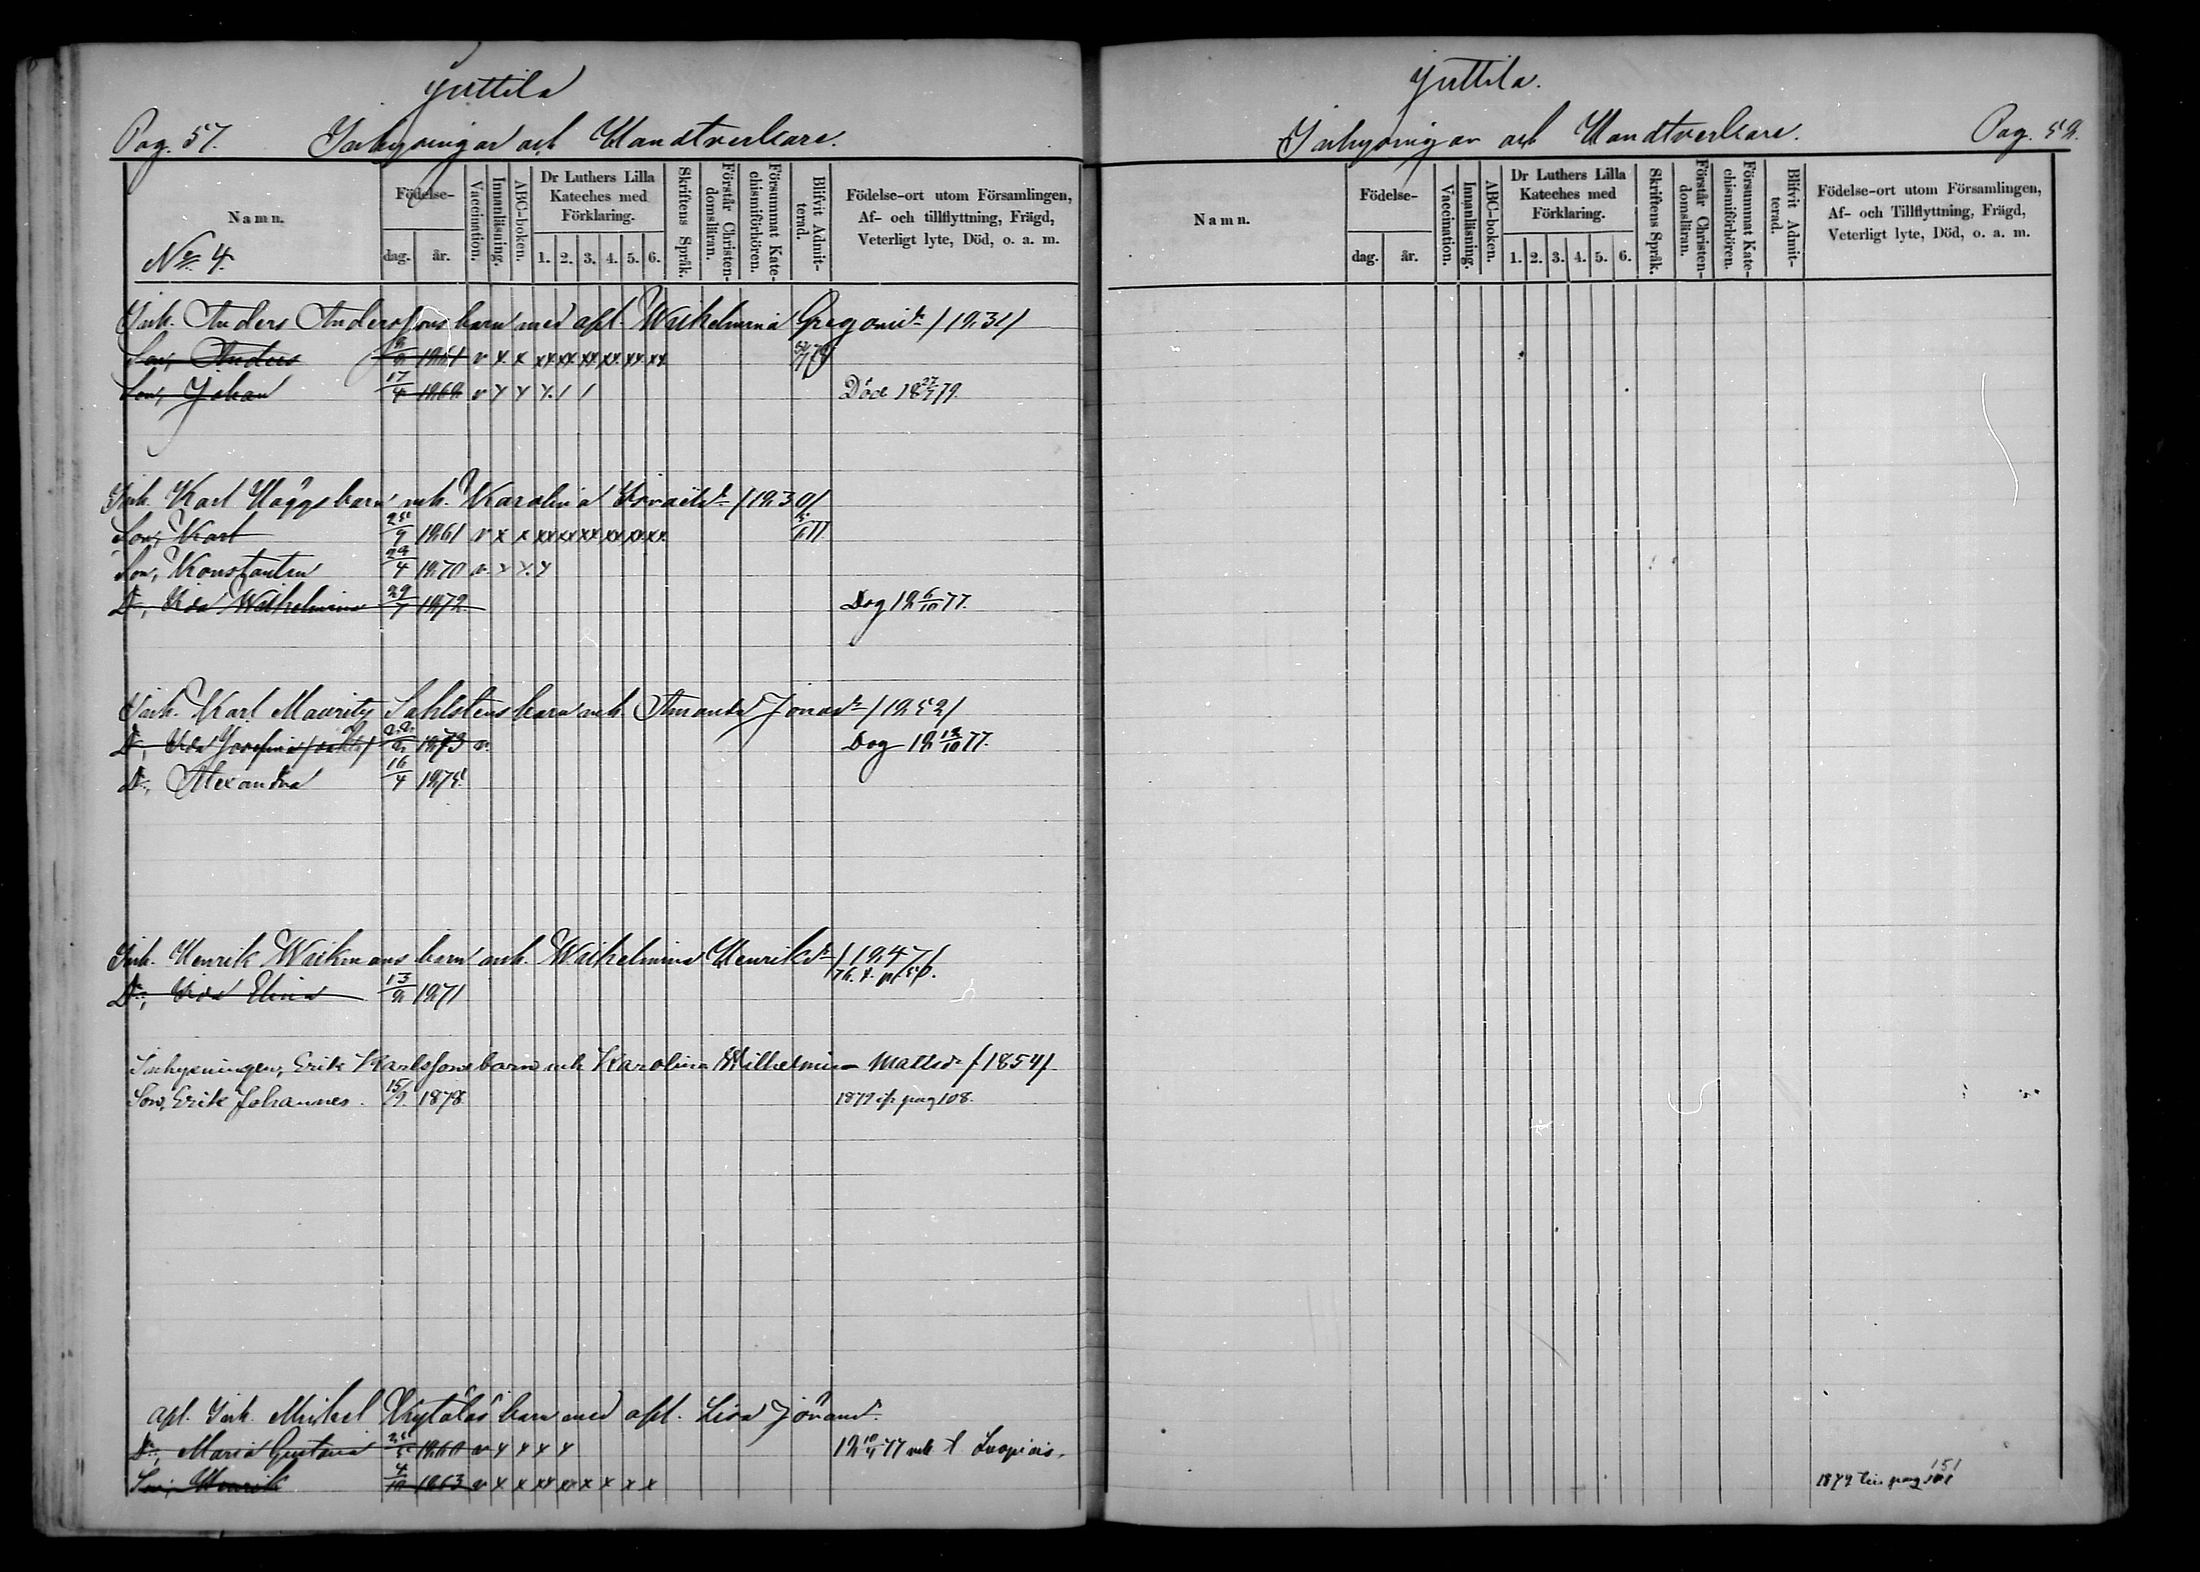 Juttila
Pag. 57. Inhysningar och Handtverkare.
Namn.
No 4.
Födelse-
dag. år.
Vaccination.
Innanläsning.
ABC-boken.
Dr Luthers Lilla Kateches med Förklaring.
1. 2. 3. 4. 5. 6.
Skriftens Språk.
Förstår Christendomsläran.
Försummat Katechismiförhören.
Blifvit Admitterad.
Födelse-ort utom Församlingen,
Af- och tillflyttning, Frägd,
Veterligt lyte, Död, o. a. m.
Inh. Anders Anderssons barn med afl. Wilhelmina Gregorid:r /1831/
Son, Anders 1861 v x x xx xx xx xx xx xx
Son, Johan 17/4 1868 v x x x / / Död 18 27/7 79.
Inh. Karl Häggs barn och Karolina Isracsd:r /1830/
Son, Karl 25/9 1861 v x x xx xx xx xx xx xx
Son, Konstantin 24/4 1870 v. x x. x
D:r, Ida Wilhelmina 29/7 1872. Dog 18 6/10 77.
Inh. Karl Mauritz Sahlstens barn och Amanda Jonasd:r /1852/
D:r, Ida Josefina 1873 v. Dog 18 13/10 77.
D:r, Alexandra 16/4 1875.
Inh. Henrik Wikmans barn och Wilhelmina Henriksd:r /1847/
D:r, Ida Elina 13/8 1871
Inhysningen, Erik Karlssons barn och Karolina Wilhelmina Mattsd:r /1854/
Son, Erik Johannes. 15/9 1878 1879 pag 108.
afl. Inh. Mikel Kytölas barn med afl. Lisa Jöransd:r
D:r, Maria Gustava 25/5 1860 v x x x x
Son, Henrik 4/10 1863 v x x xx xx x x x x
Juttila.
Inhysningar och Handtverkare. Pag. 58.
Namn.
Födelse-
dag. år.
Vaccination.
Innanläsning.
ABC-boken.
Dr Luthers Lilla Kateches med Förklaring.
1. 2. 3. 4. 5. 6.
Skriftens Språk.
Förstår Christendomsläran.
Försummat Katechismiförhören.
Blifvit Admitterad.
Födelse-ort utom Församlingen,
Af- och Tillflyttning, Frägd,
Veterligt lyte, Död, o. a. m.
151
1879 pag